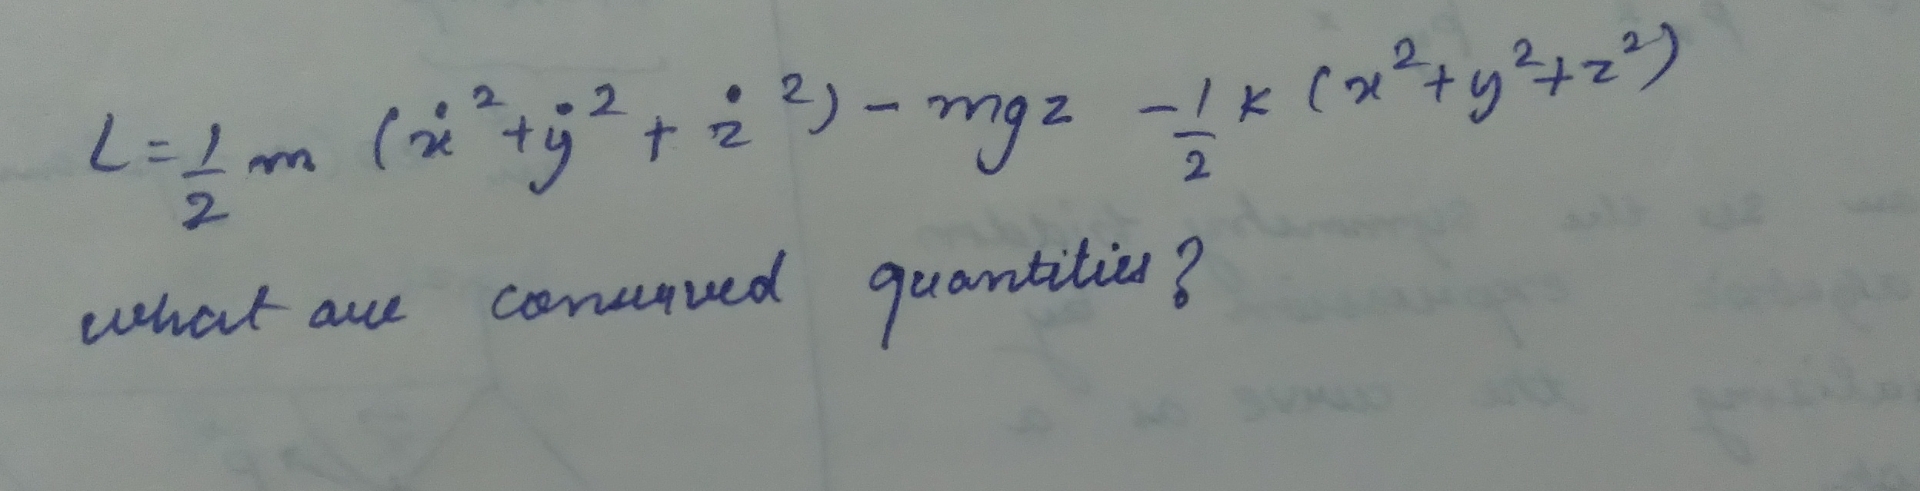 L = 1/2 m (ẋ² + ẏ² + ż²) - mgz - 1/2 k (x² + y² + z²)
what are conserved quantities?